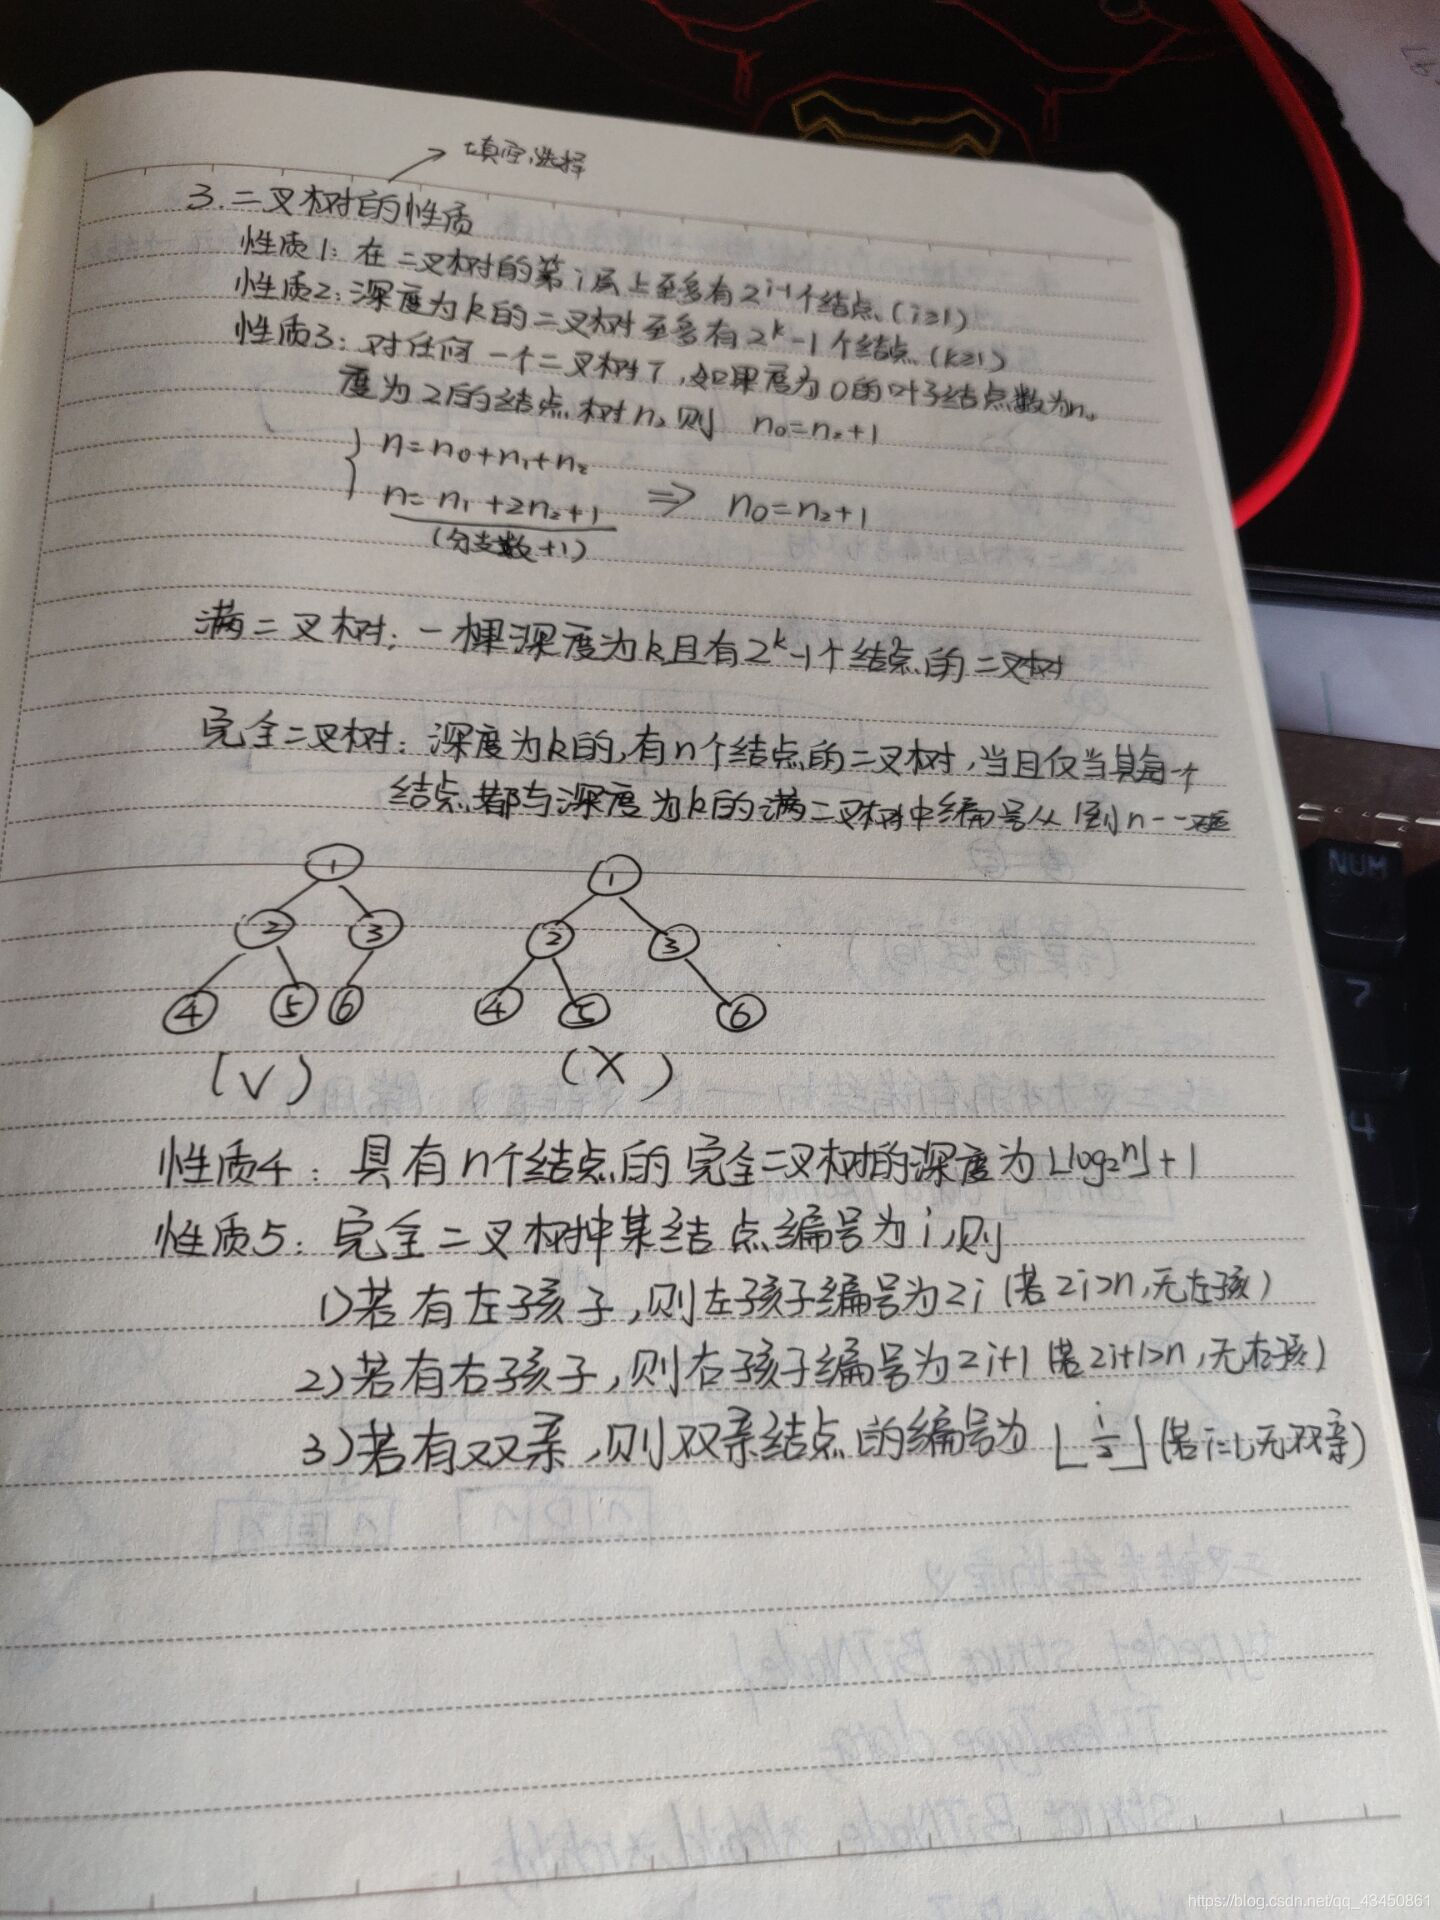 填空,选择
3.二叉树的性质
性质1:在二叉树的第i层上至多有2^{i-1}个结点(i≥1)
性质2:深度为k的二叉树至多有2^k-1个结点(k≥1)
性质3:对任何一个二叉树T,如果度为0的叶子结点数为n₀
度为2的结点树n₂则 n₀=n₂+1
{ n=n₀+n₁+n₂
n=n₁+2n₂+1 ⇒ n₀=n₂+1
(分支数+1)
满二叉树:一棵深度为k且有2^k-1个结点的二叉树
完全二叉树:深度为k的,有n个结点的二叉树,当且仅当其每一个
结点都与深度为k的满二叉树中编号从1到n一一对应
1 1
2 3 2 3
4 5 6 4 5 6
(√) (×)
性质4:具有n个结点的完全二叉树的深度为⌊log₂n⌋+1
性质5:完全二叉树中某结点编号为i,则
1)若有左孩子,则左孩子编号为2i(若2i>n,无左孩)
2)若有右孩子,则右孩子编号为2i+1(若2i+1>n,无右孩)
3)若有双亲,则双亲结点的编号为⌊i/2⌋(若i=1,无双亲)
NUM
7
4
https://blog.csdn.net/qq_43450861